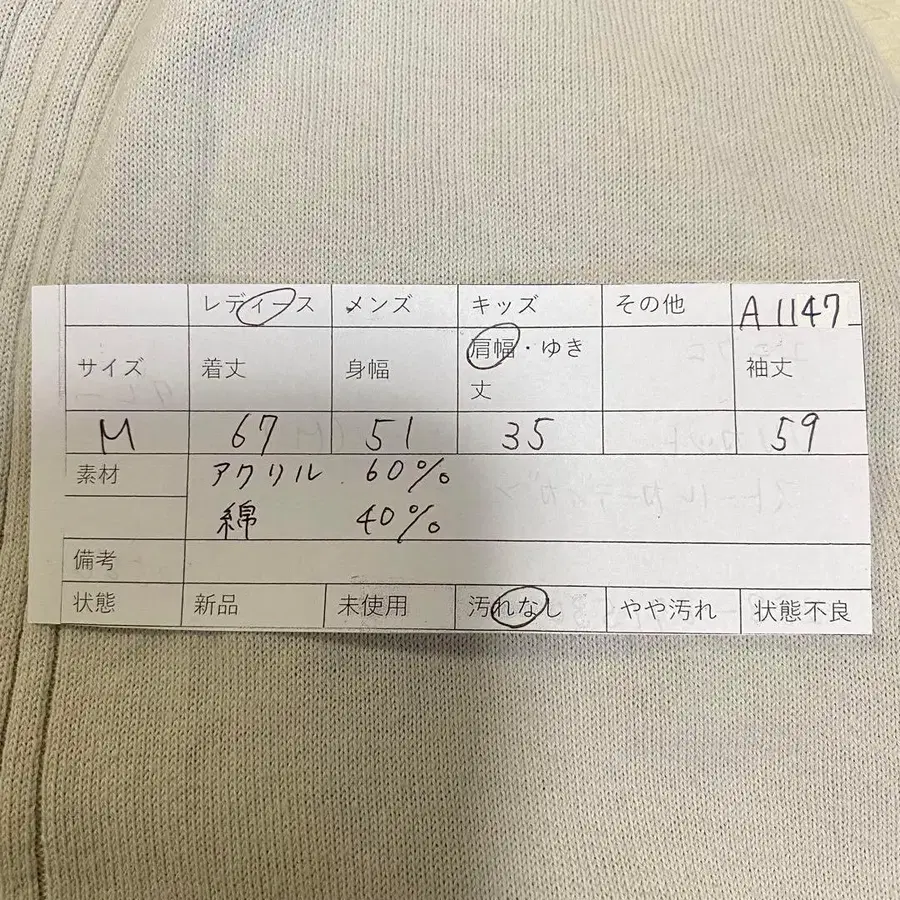 レディース メンズ キッズ その他 A1147
サイズ 着丈 身幅 肩幅・ゆき丈 袖丈
M 67 51 35 59
素材 アクリル 60%
綿 40%
備考
状態 新品 未使用 汚れなし やや汚れ 状態不良